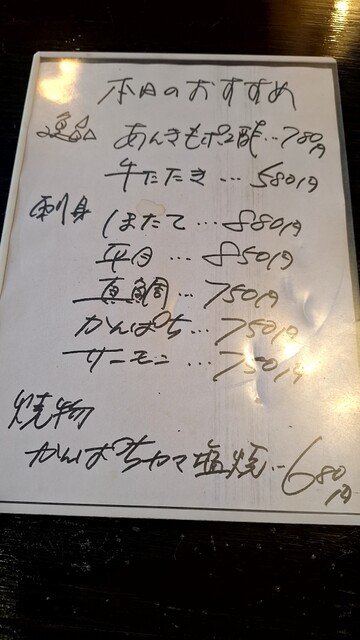 本日のおすすめ
逸品 あんきもポン酢…780円
牛たたき…580円
刺身 ほたて…880円
平目…850円
真鯛…750円
かんぱち…750円
サーモン…750円
焼物
かんぱちカマ塩焼…680円